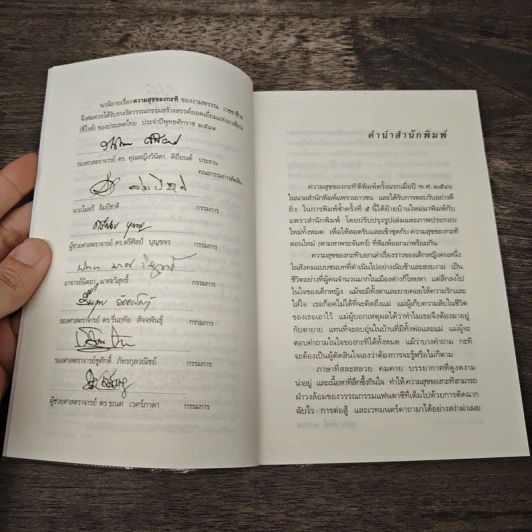 นวนิยายเรื่อง ความสุขของกะทิ ของงามพรรณ เวชชาชีวะ
จึงสมควรได้รับรางวัลวรรณกรรมสร้างสรรค์ยอดเยี่ยมแห่งอาเซียน
(ซีไรต์) ของประเทศไทย ประจำปีพุทธศักราช ๒๕๔๙
รองศาสตราจารย์ ดร. คุณหญิงวินิตา ดิถียนต์ ประธาน
คณะกรรมการตัดสิน
นายไมตรี ลิมปิชาติ กรรมการ
ผู้ช่วยศาสตราจารย์ ดร.ตรีศิลป์ บุญขจร กรรมการ
อาจารย์นิตยา มาศะวิสุทธิ์ กรรมการ
รองศาสตราจารย์ ดร.รื่นฤทัย สัจจพันธุ์ กรรมการ
รองศาสตราจารย์ชูศักดิ์ ภัทรกุลวณิชย์ กรรมการ
ผู้ช่วยศาสตราจารย์ ดร.ธเนศ เวศร์ภาดา กรรมการ
คำนำสำนักพิมพ์
ความสุขของกะทิ ตีพิมพ์ครั้งแรกเมื่อปี พ.ศ. ๒๕๔๖
ในนามสำนักพิมพ์แพรวเยาวชน และได้รับการตอบรับอย่างดี
ยิ่ง ในการพิมพ์ซ้ำครั้งที่ ๕ นี้ได้ย้ายบ้านใหม่มาพิมพ์กับ
แพรวสำนักพิมพ์ โดยปรับปรุงรูปเล่มและภาพประกอบ
ใหม่ทั้งหมด เพื่อให้สอดรับและเข้าชุดกับ ความสุขของกะทิ
ตอนใหม่ (ตามหาพระจันทร์) ที่พิมพ์ออกมาพร้อมกัน
ความสุขของกะทิบอกเล่าเรื่องราวของเด็กหญิงคนหนึ่ง
ในสังคมแบบชนบทที่ดำเนินไปอย่างเนิบช้าและสงบงาม เป็น
ชีวิตอย่างที่ผู้คนจำนวนมากในเมืองห่างไกลโหยหา แต่ลึกลงไป
ในใจของเด็กหญิง แม้จะมีทั้งตาและยายคอยให้ความรักและ
ใส่ใจ เธอก็อดไม่ได้ที่จะคิดถึงแม่ แม่ผู้เก็บความลับในชีวิต
ของเธอเอาไว้ แม่ผู้บอกเหตุผลได้ว่าทำไมเธอจึงต้องมาอยู่
กับตายาย แทนที่จะอบอุ่นในบ้านที่มีทั้งพ่อและแม่ แม่ผู้จะ
ตอบคำถามในใจของกะทิได้ทั้งหมด แม้ว่าบางคำถาม กะทิ
จะต้องเป็นผู้ตัดสินใจเองว่าต้องการจะรู้หรือไม่ก็ตาม
ภาษาที่สละสลวย คมคาย บรรยากาศที่ดูงดงาม
น่าอยู่ และเนื้อหาที่ลึกซึ้งกินใจ ทำให้ ความสุขของกะทิ สามารถ
ฝ่าวงล้อมของวรรณกรรมแฟนตาซีที่เต็มไปด้วยการตัดฉาก
ฉับไว การต่อสู้ และเวทมนตร์คาถามาได้อย่างสง่าผ่าเผย